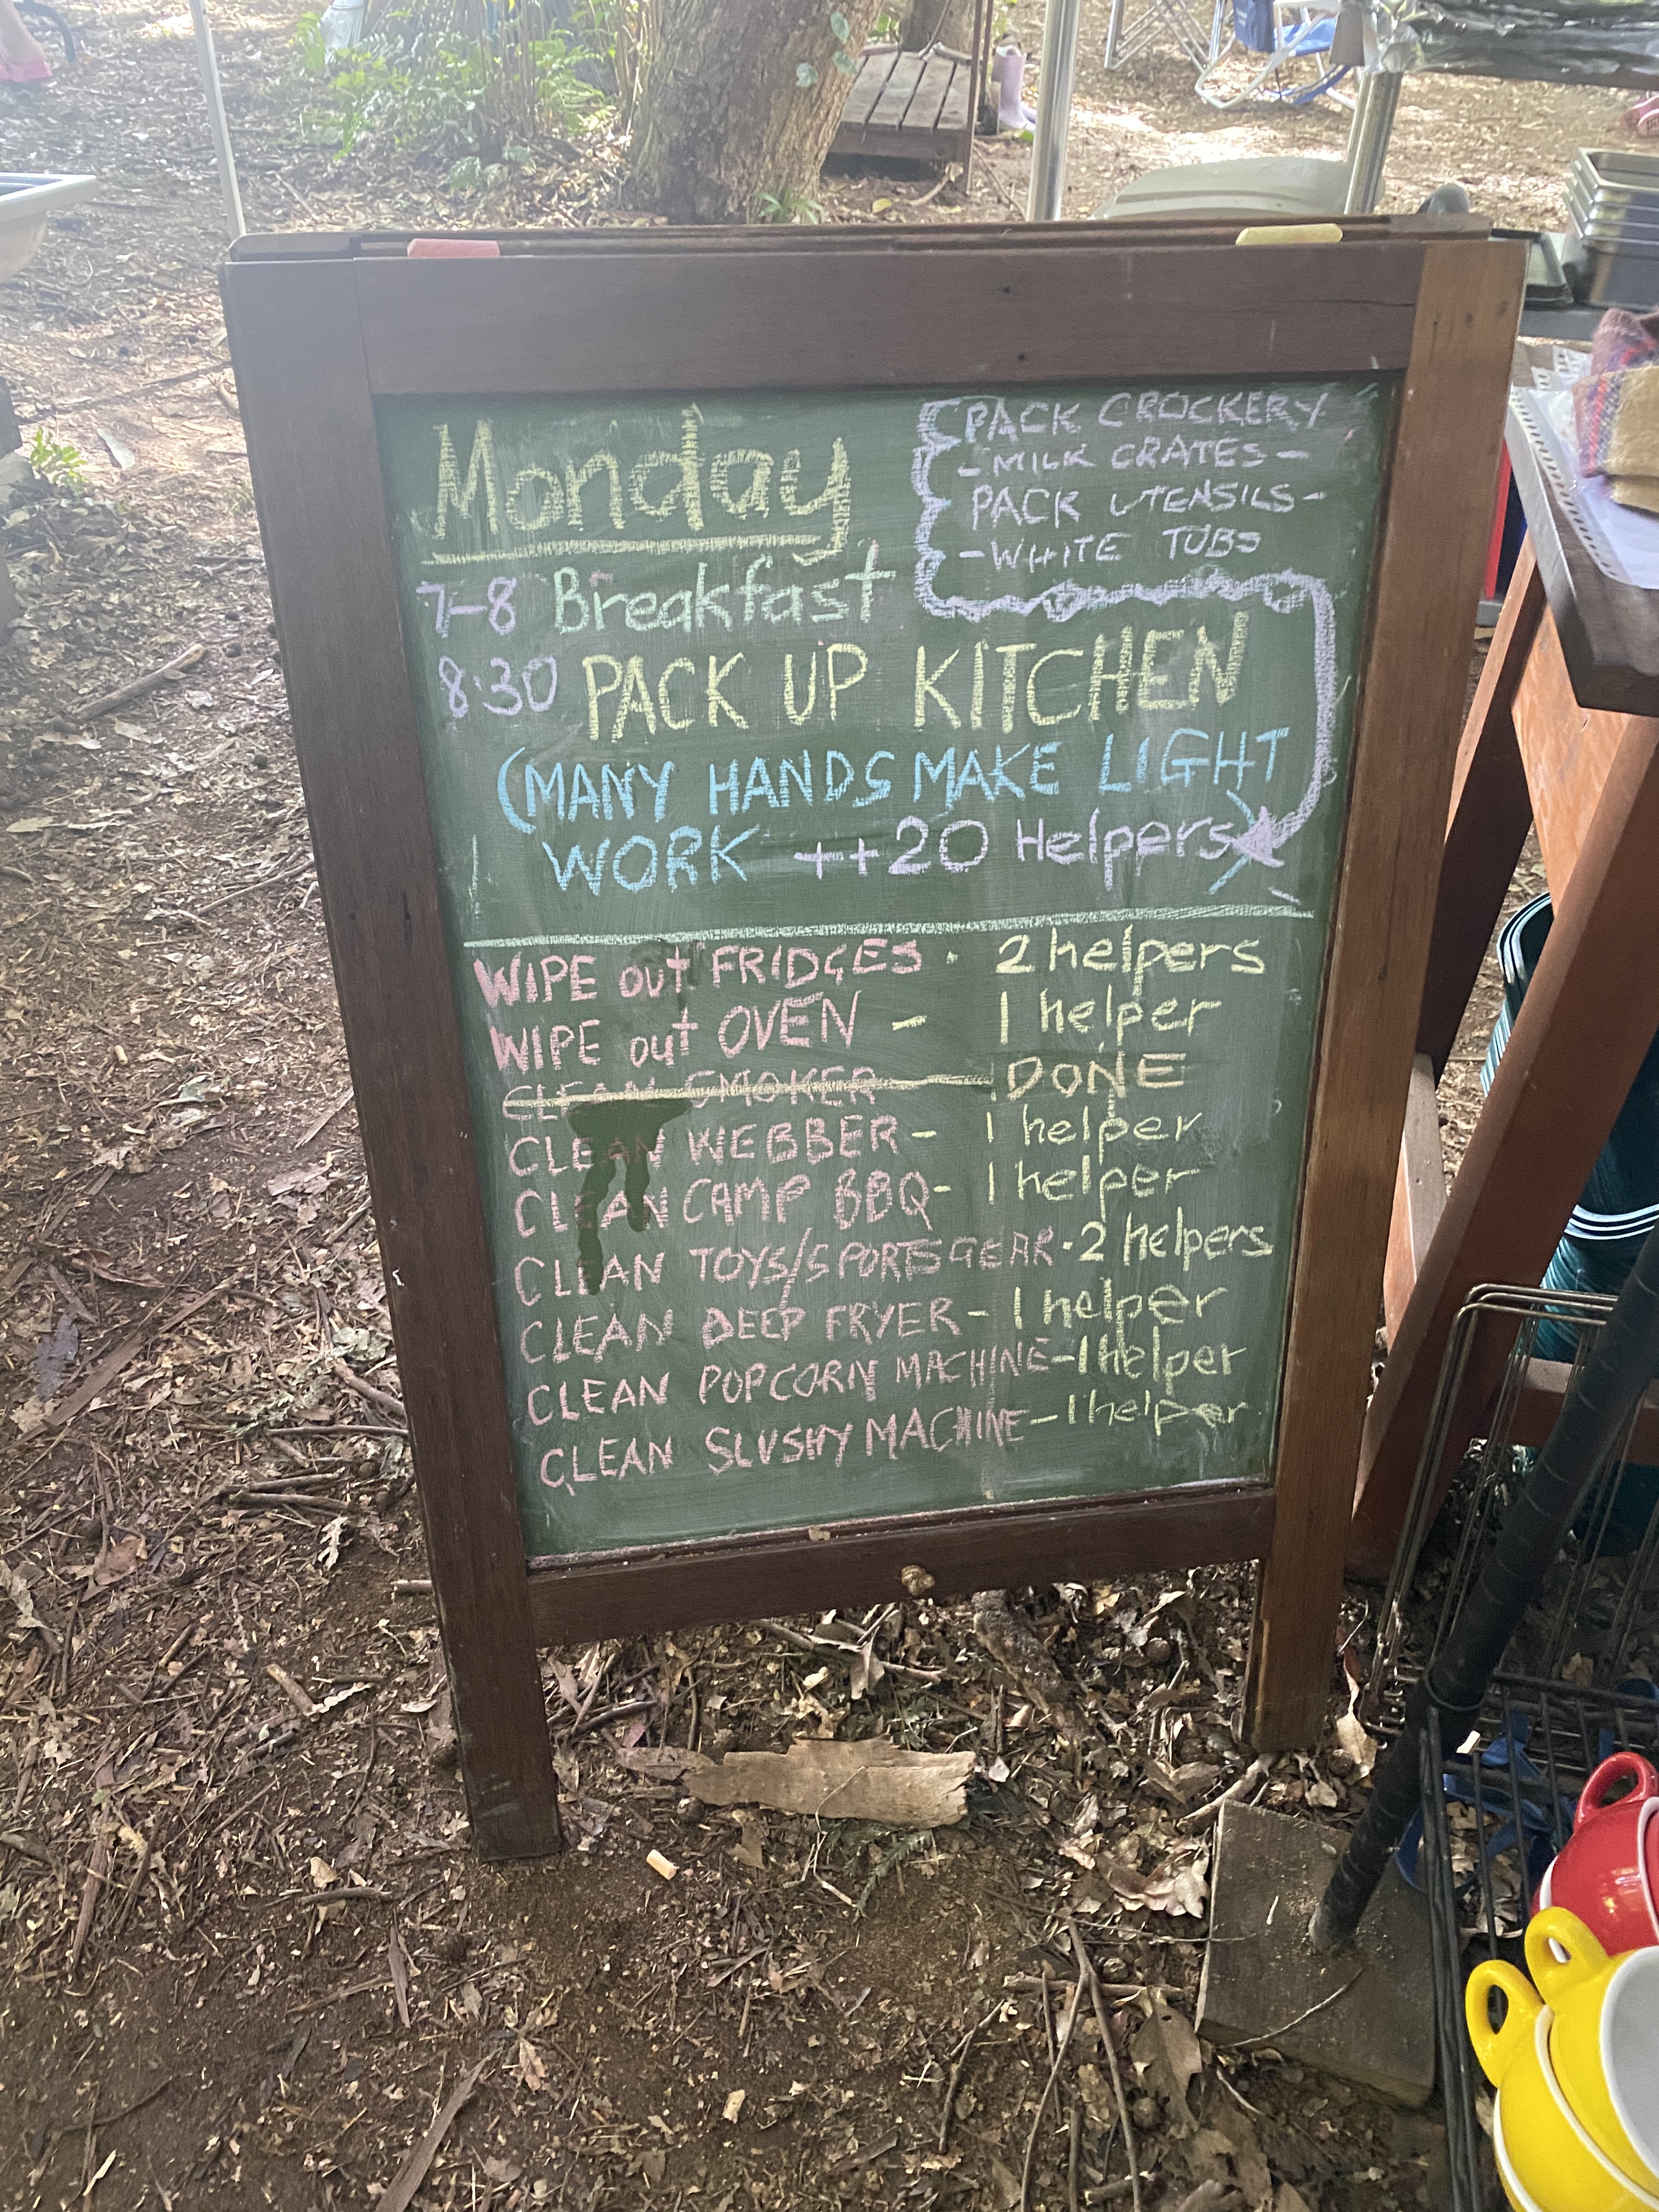 Monday
PACK CROCKERY
-MILK CRATES-
PACK UTENSILS-
-WHITE TUBS
7-8 Breakfast
8:30 PACK UP KITCHEN
(MANY HANDS MAKE LIGHT
WORK ++20 Helpers)
WIPE out FRIDGES · 2 helpers
WIPE out OVEN - 1 helper
CLEAN SMOKER DONE
CLEAN WEBBER - 1 helper
CLEAN CAMP BBQ - 1 helper
CLEAN TOYS/SPORTSGEAR · 2 helpers
CLEAN DEEP FRYER - 1 helper
CLEAN POPCORN MACHINE - 1 helper
CLEAN SLUSHY MACHINE - 1 helper